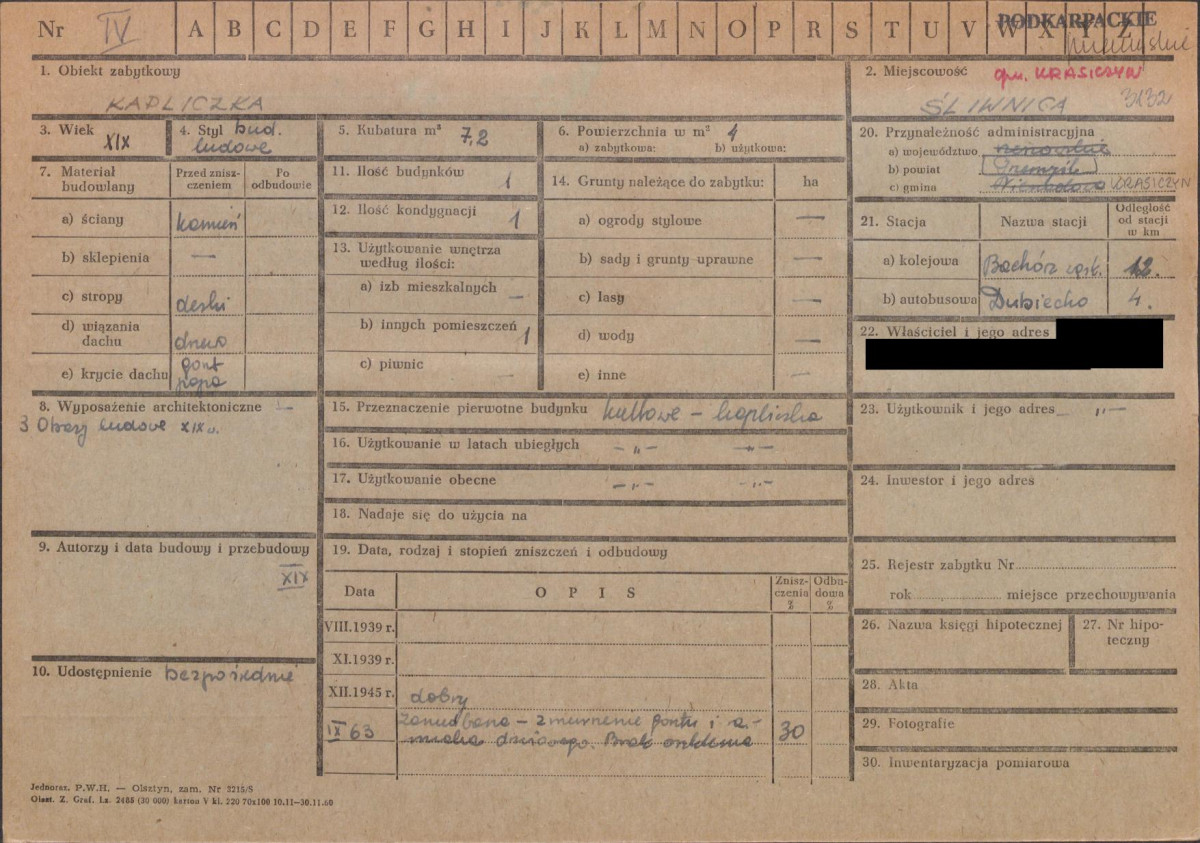 Nr IV A B C D E F G H I J K L M N O P R S T U V W X Y Z PODKARPACKIE
1. Obiekt zabytkowy
KAPLICZKA
2. Miejscowość gm. KRASICZYN
ŚLIWNICA 3132
3. Wiek XIX
4. Styl bud. ludowe
5. Kubatura m³ 7,2
6. Powierzchnia w m² 4
a) zabytkowa: b) użytkowa:
7. Materiał budowlany
Przed zniszczeniem
Po odbudowie
a) ściany kamień
b) sklepienia —
c) stropy deski
d) wiązania dachu drewo
e) krycie dachu gont papa
8. Wyposażenie architektoniczne —
3 Obrazy ludowe XIX w.
9. Autorzy i data budowy i przebudowy
XIX
10. Udostępnienie bezpośrednie
11. Ilość budynków 1
12. Ilość kondygnacji 1
13. Użytkowanie wnętrza według ilości:
a) izb mieszkalnych —
b) innych pomieszczeń 1
c) piwnic —
14. Grunty należące do zabytku: ha
a) ogrody stylowe —
b) sady i grunty uprawne —
c) lasy —
d) wody —
e) inne —
15. Przeznaczenie pierwotne budynku kultowe – kapliczka
16. Użytkowanie w latach ubiegłych –„– –„–
17. Użytkowanie obecne –„– –„–
18. Nadaje się do użycia na
19. Data, rodzaj i stopień zniszczeń i odbudowy
Data OPIS Zniszczenia % Odbudowa %
VIII.1939 r.
XI.1939 r.
XII.1945 r. dobry
IX 63 zaniedbana – zmurszenie gontu i
Brak 30
20. Przynależność administracyjna
a) województwo rzeszowskie
b) powiat Przemyśl
c) gmina KRASICZYN
21. Stacja
Nazwa stacji
Odległość od stacji w km
a) kolejowa Bachórz wąsk. 12.
b) autobusowa Dubiecko 4.
22. Właściciel i jego adres
23. Użytkownik i jego adres –„–
24. Inwestor i jego adres
25. Rejestr zabytku Nr
rok miejsce przechowywania
26. Nazwa księgi hipotecznej
27. Nr hipoteczny
28. Akta
29. Fotografie
30. Inwentaryzacja pomiarowa
Jednoraz. P.W.H. — Olsztyn, zam. Nr 3215/S
Olszt. Z. Graf. Lz. 2485 (30 000) karton V kl. 220 70x100 10.11—30.11.60